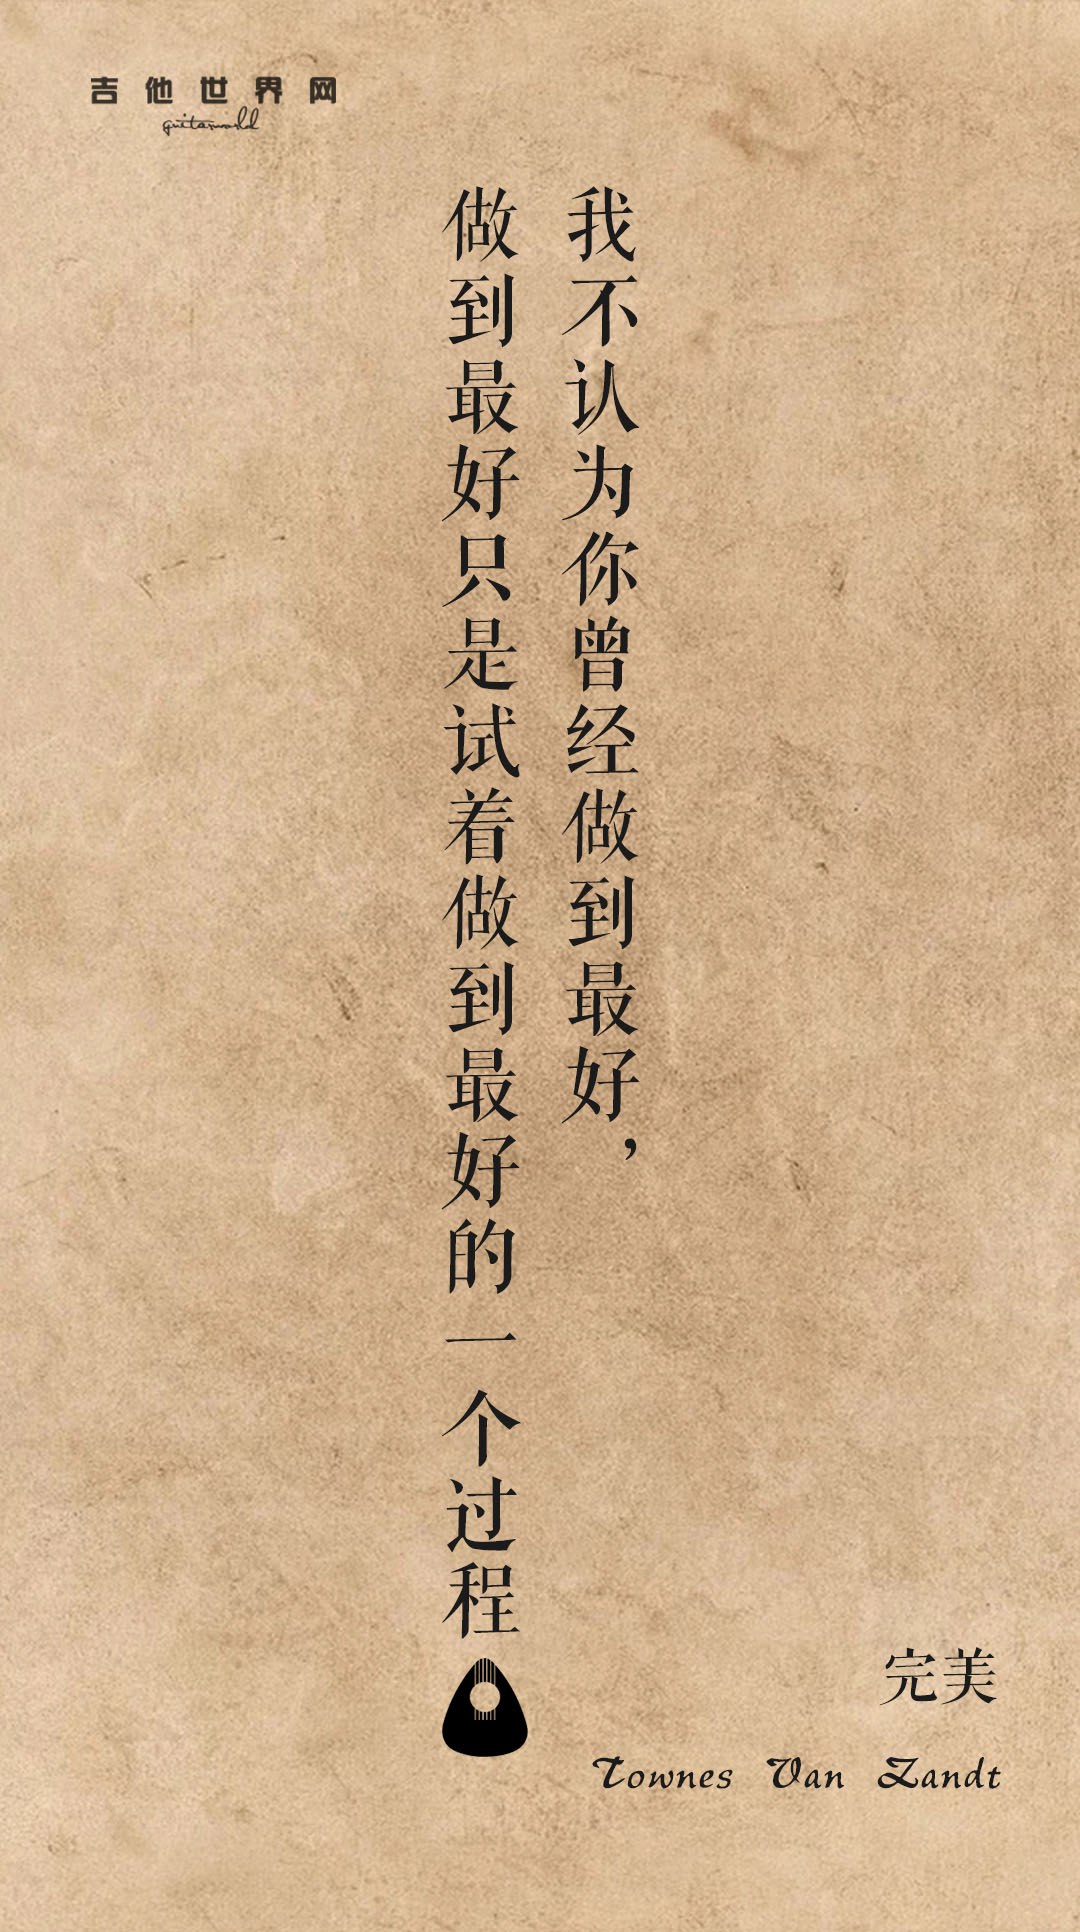 吉他世界网
guitarworld
我不认为你曾经做到最好，
做到最好只是试着做到最好的一个过程
完美
Townes Van Zandt